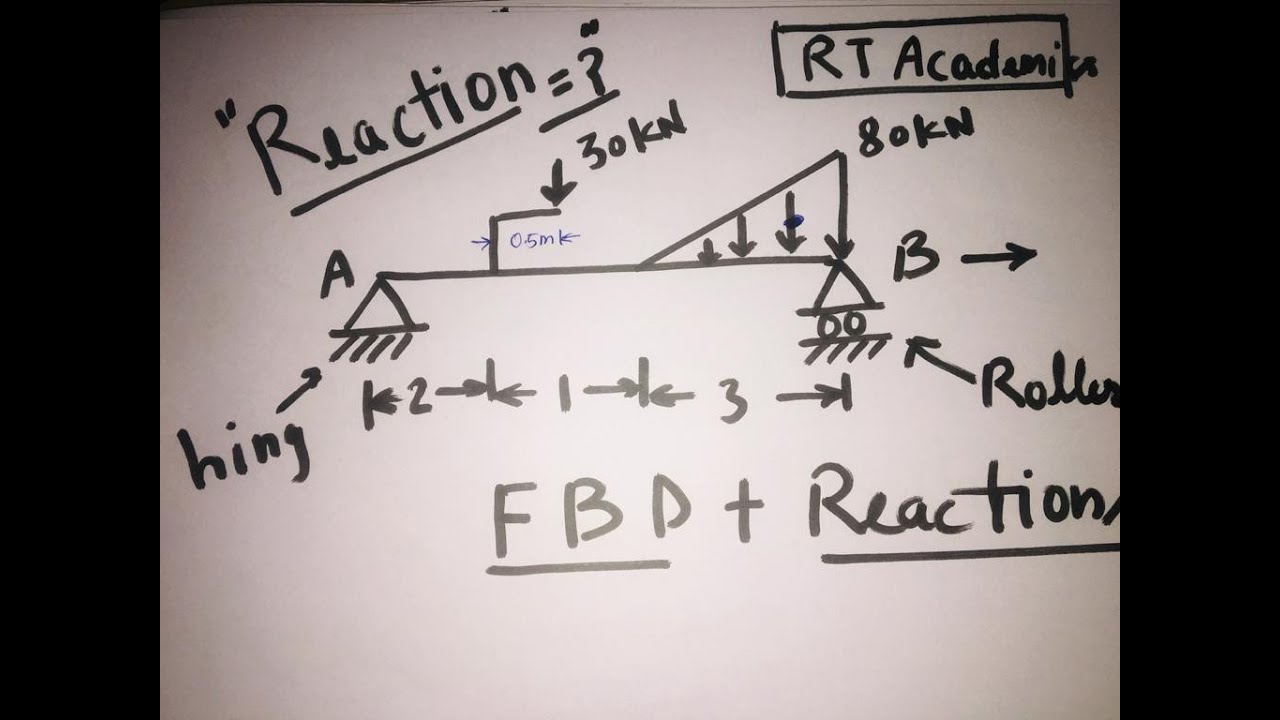 "Reaction=?"
RT Academi
30KN
80KN
0.5m
A
B
2
1
3
hing
Roller
FBD + Reactions